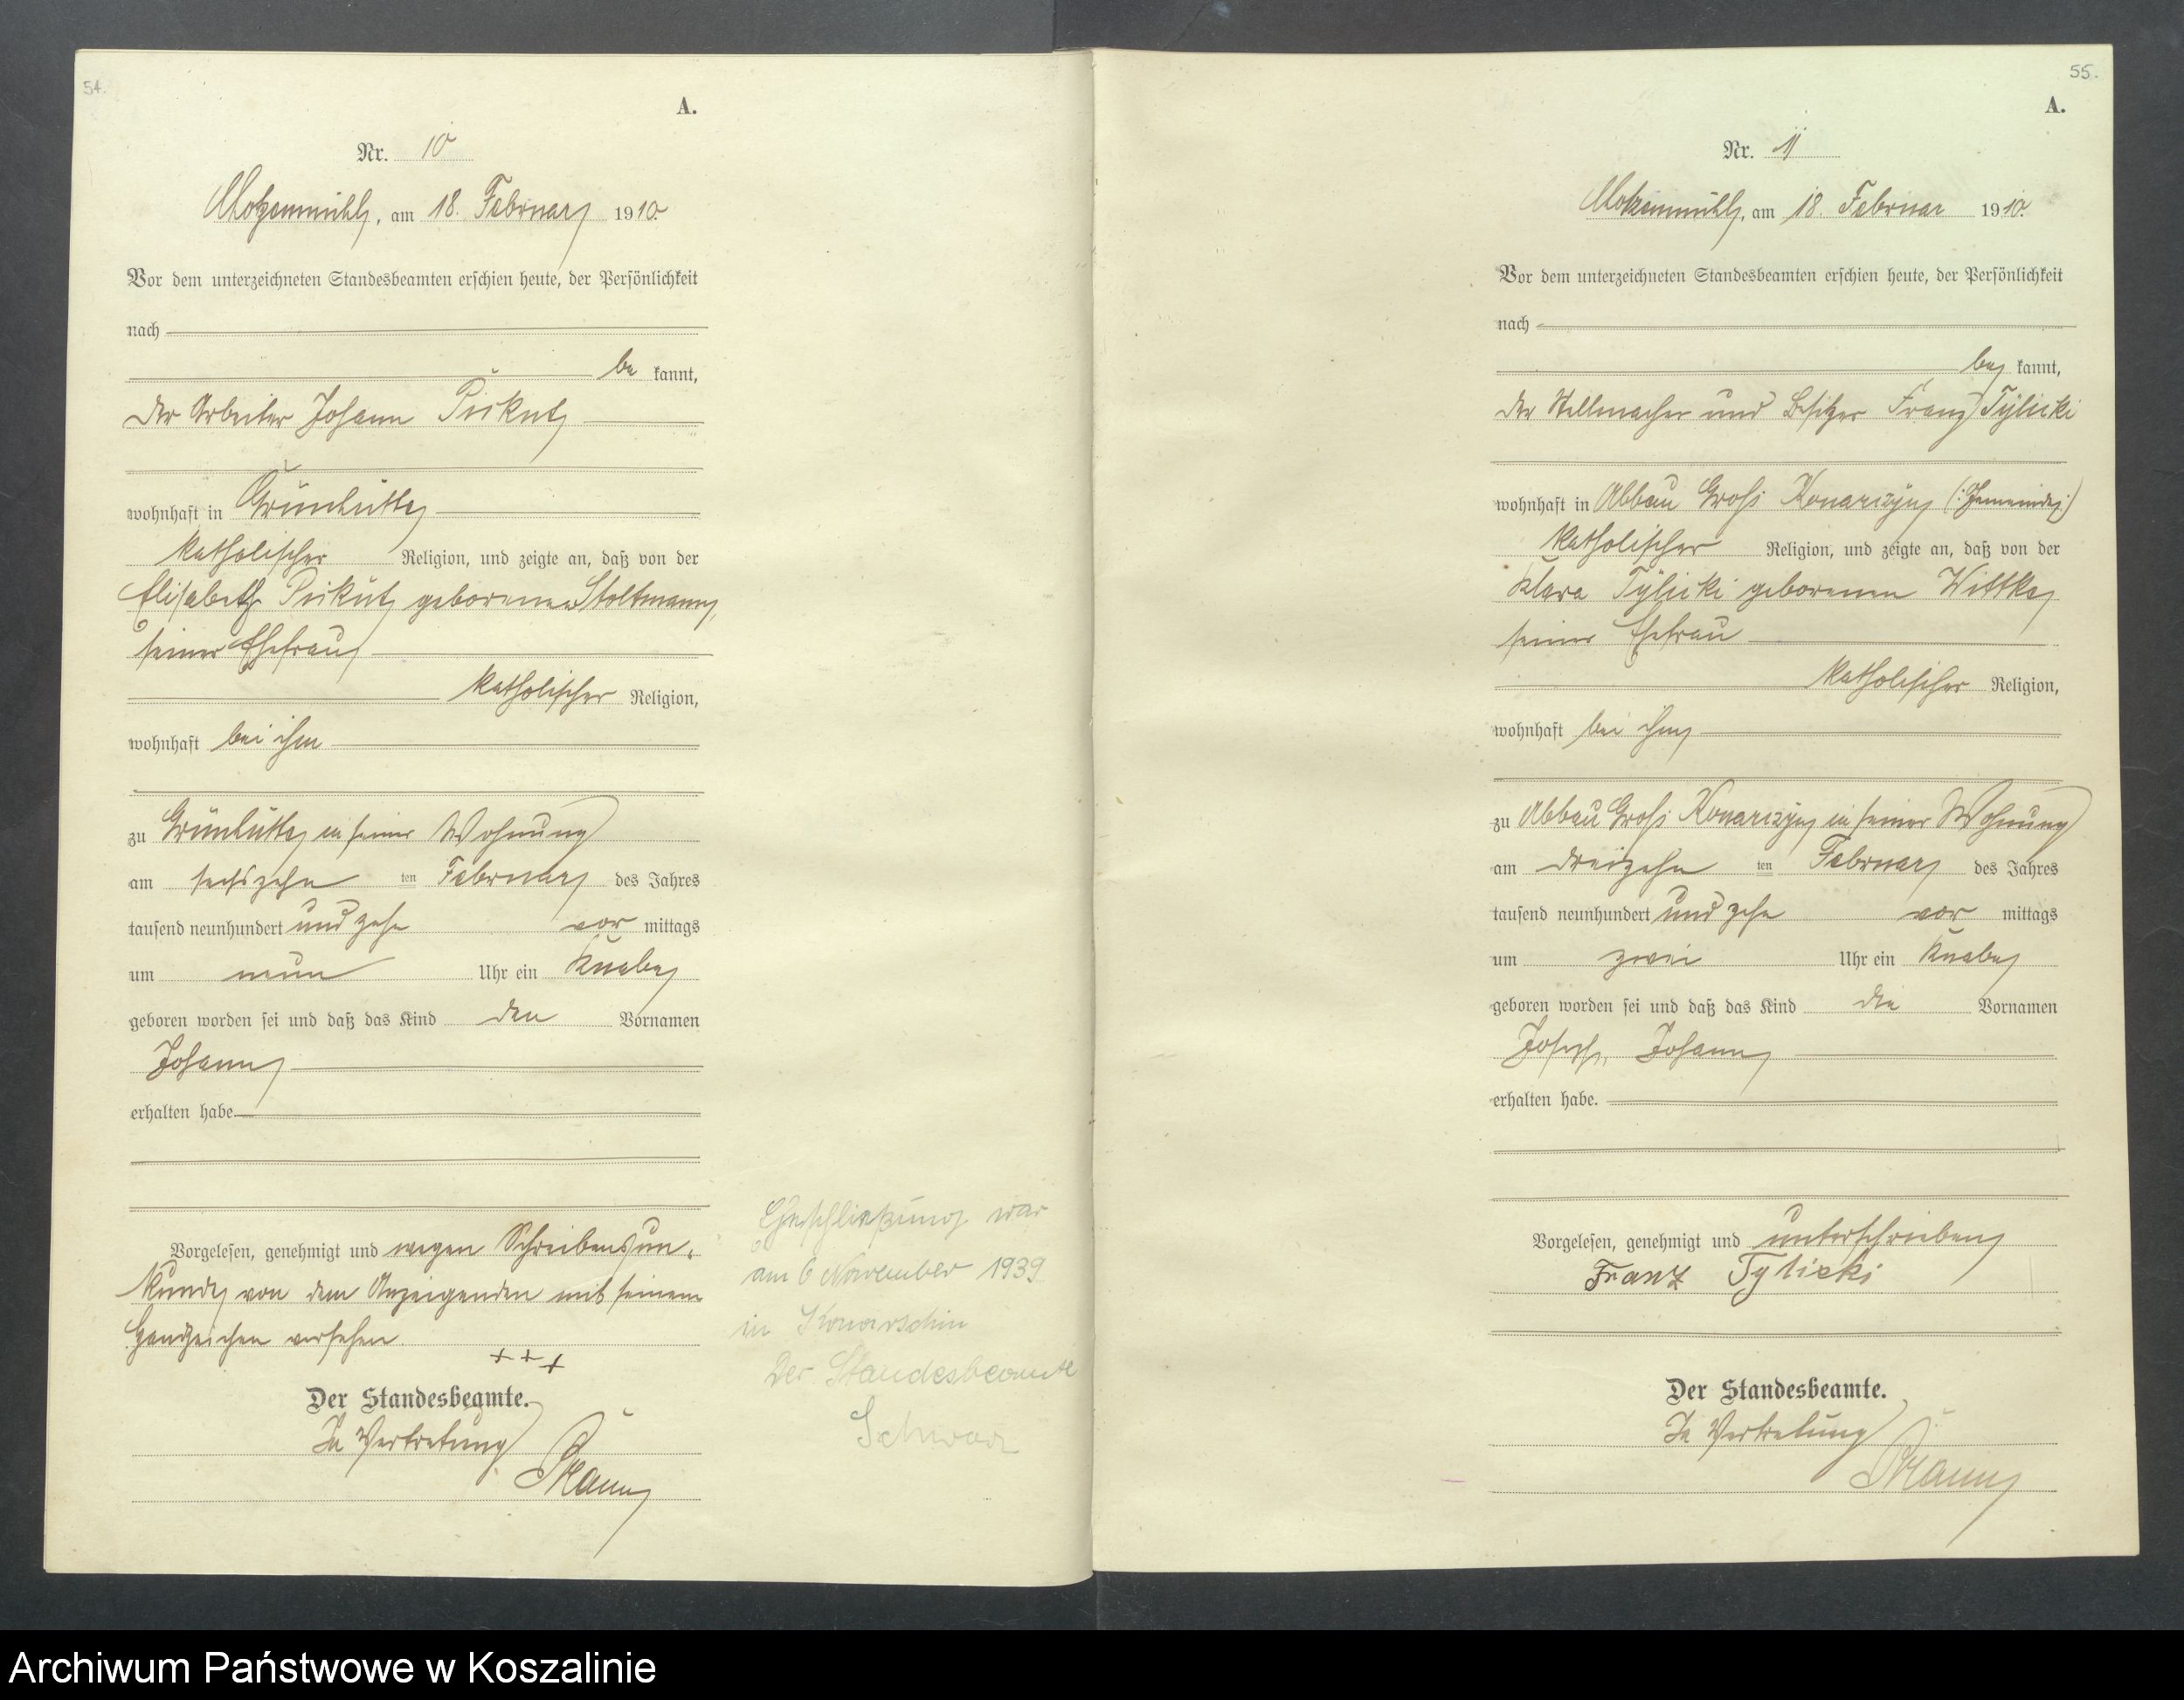 54.
A.
Nr. 10
Klotzenmühl, am 18. Februar 1910.
Vor dem unterzeichneten Standesbeamten erschien heute, der Persönlichkeit
nach
be kannt,
der Arbeiter Johann
wohnhaft in Grünhütte
katholischer Religion, und zeigte an, daß von der
Elisabeth geborenen Stoltmann,
seiner Ehefrau
katholischer Religion,
wohnhaft bei ihm
zu Grünhütte in seiner Wohnung
am sechszehn ten Februar des Jahres
tausend neunhundert und zehn vor mittags
um neun Uhr ein Knabe
geboren worden sei und daß das Kind den Vornamen
Johann
erhalten habe.
Vorgelesen, genehmigt und wegen Schreibensun-
kunde von dem Anzeigenden mit seinem
Handzeichen versehen.
+++
Der Standesbeamte.
In Vertretung
Eheschließung war
am 6 November 1939
in Konarschin
Der Standesbeamte
55.
A.
Nr. 11
am 18. Februar 1910.
Vor dem unterzeichneten Standesbeamten erschien heute, der Persönlichkeit
nach
be kannt,
der Stellmacher und Besitzer Franz Tylicki
wohnhaft in Abbau Groß Konarczyn (:Gemeinde:)
katholischer Religion, und zeigte an, daß von der
Klara Tylicki geborenen Wittke
seiner Ehefrau
katholischer Religion,
wohnhaft bei ihm
zu Abbau Groß Konarczyn in seiner Wohnung
am dreizehn ten Februar des Jahres
tausend neunhundert und zehn vor mittags
um zwei Uhr ein Knabe
geboren worden sei und daß das Kind die Vornamen
Joseph, Johann
erhalten habe.
Vorgelesen, genehmigt und unterschrieben
Franz Tylicki
Der Standesbeamte.
In Vertretung
Archiwum Państwowe w Koszalinie